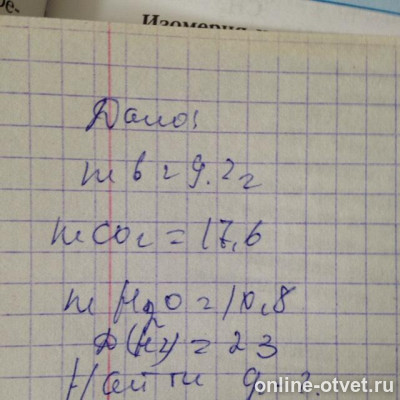 Изомерия
Дано:
m в = 9.2 г
m CO₂ = 17,6
m H₂O = 10,8
D(H₂) = 23
Найти
online-otvet.ru